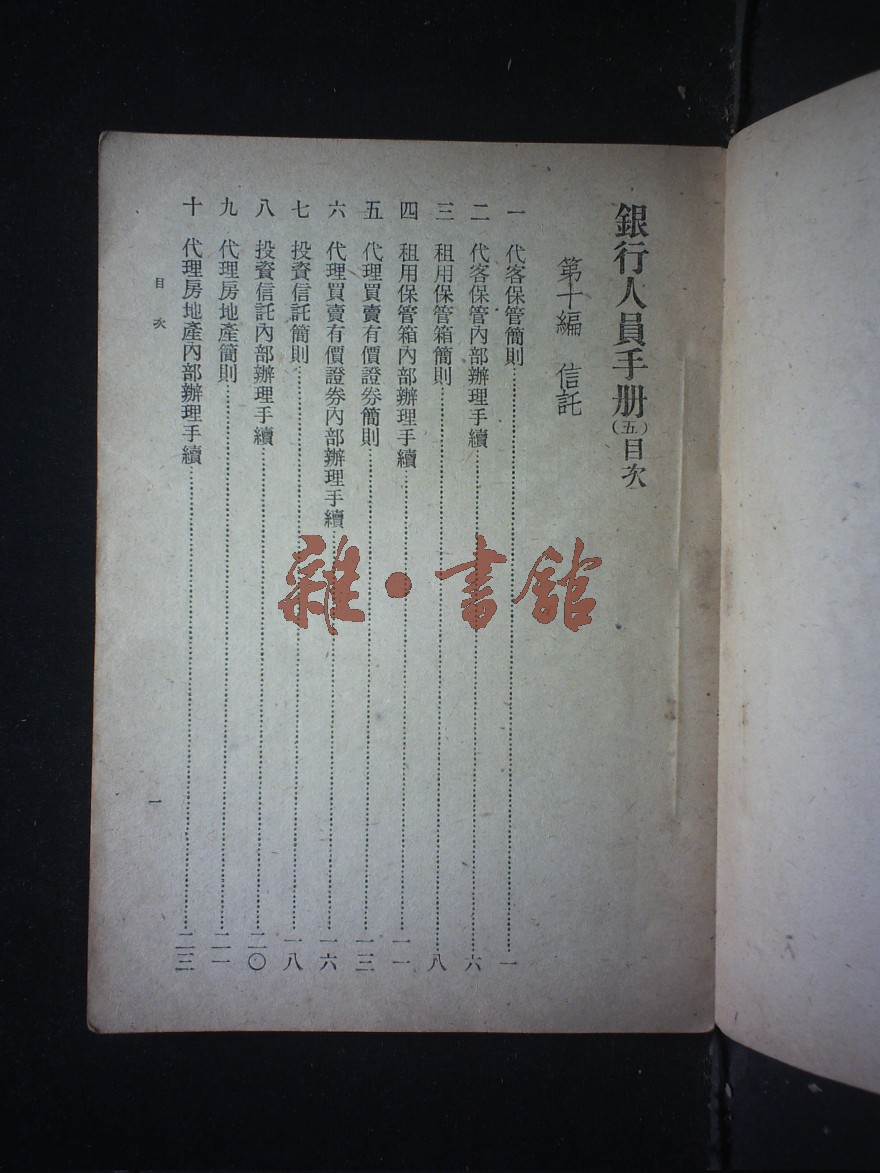 銀行人員手册(五)目次
第十編 信託
一 代客保管簡則……一
二 代客保管內部辦理手續……六
三 租用保管箱簡則……八
四 租用保管箱內部辦理手續……一一
五 代理買賣有價證券簡則……一三
六 代理買賣有價證券內部辦理手續……一六
七 投資信託簡則……一八
八 投資信託內部辦理手續……二〇
九 代理房地產簡則……二一
十 代理房地產內部辦理手續……二三
目次
一
雜·書館